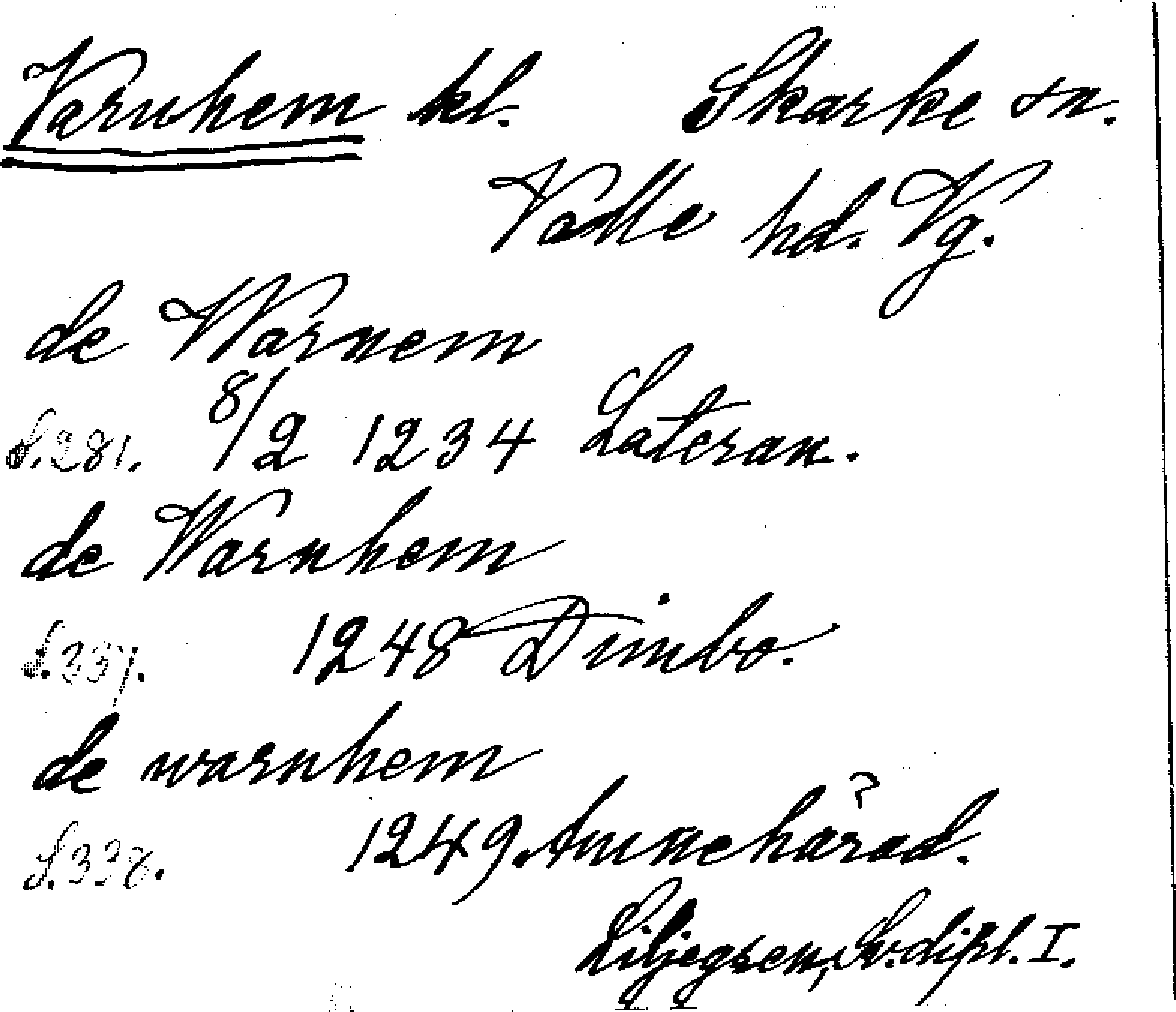 Varnhem kl. Skarke sn.
Valle hd. Vg.
de Warnem
S. 281. 8/2 1234 Lateran.
de Warnhem
S. 357. 1248 Dimbo.
de warnhem
S. 338. 1249. Amnehärad. ?
Liljegren, Sv. dipl. I.